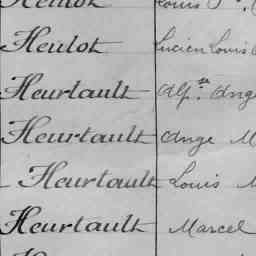 Heulot Louis
Heulot Lucien Louis
Heurtault Alp.se Ange
Heurtault Ange M
Heurtault Louis M
Heurtault Marcel